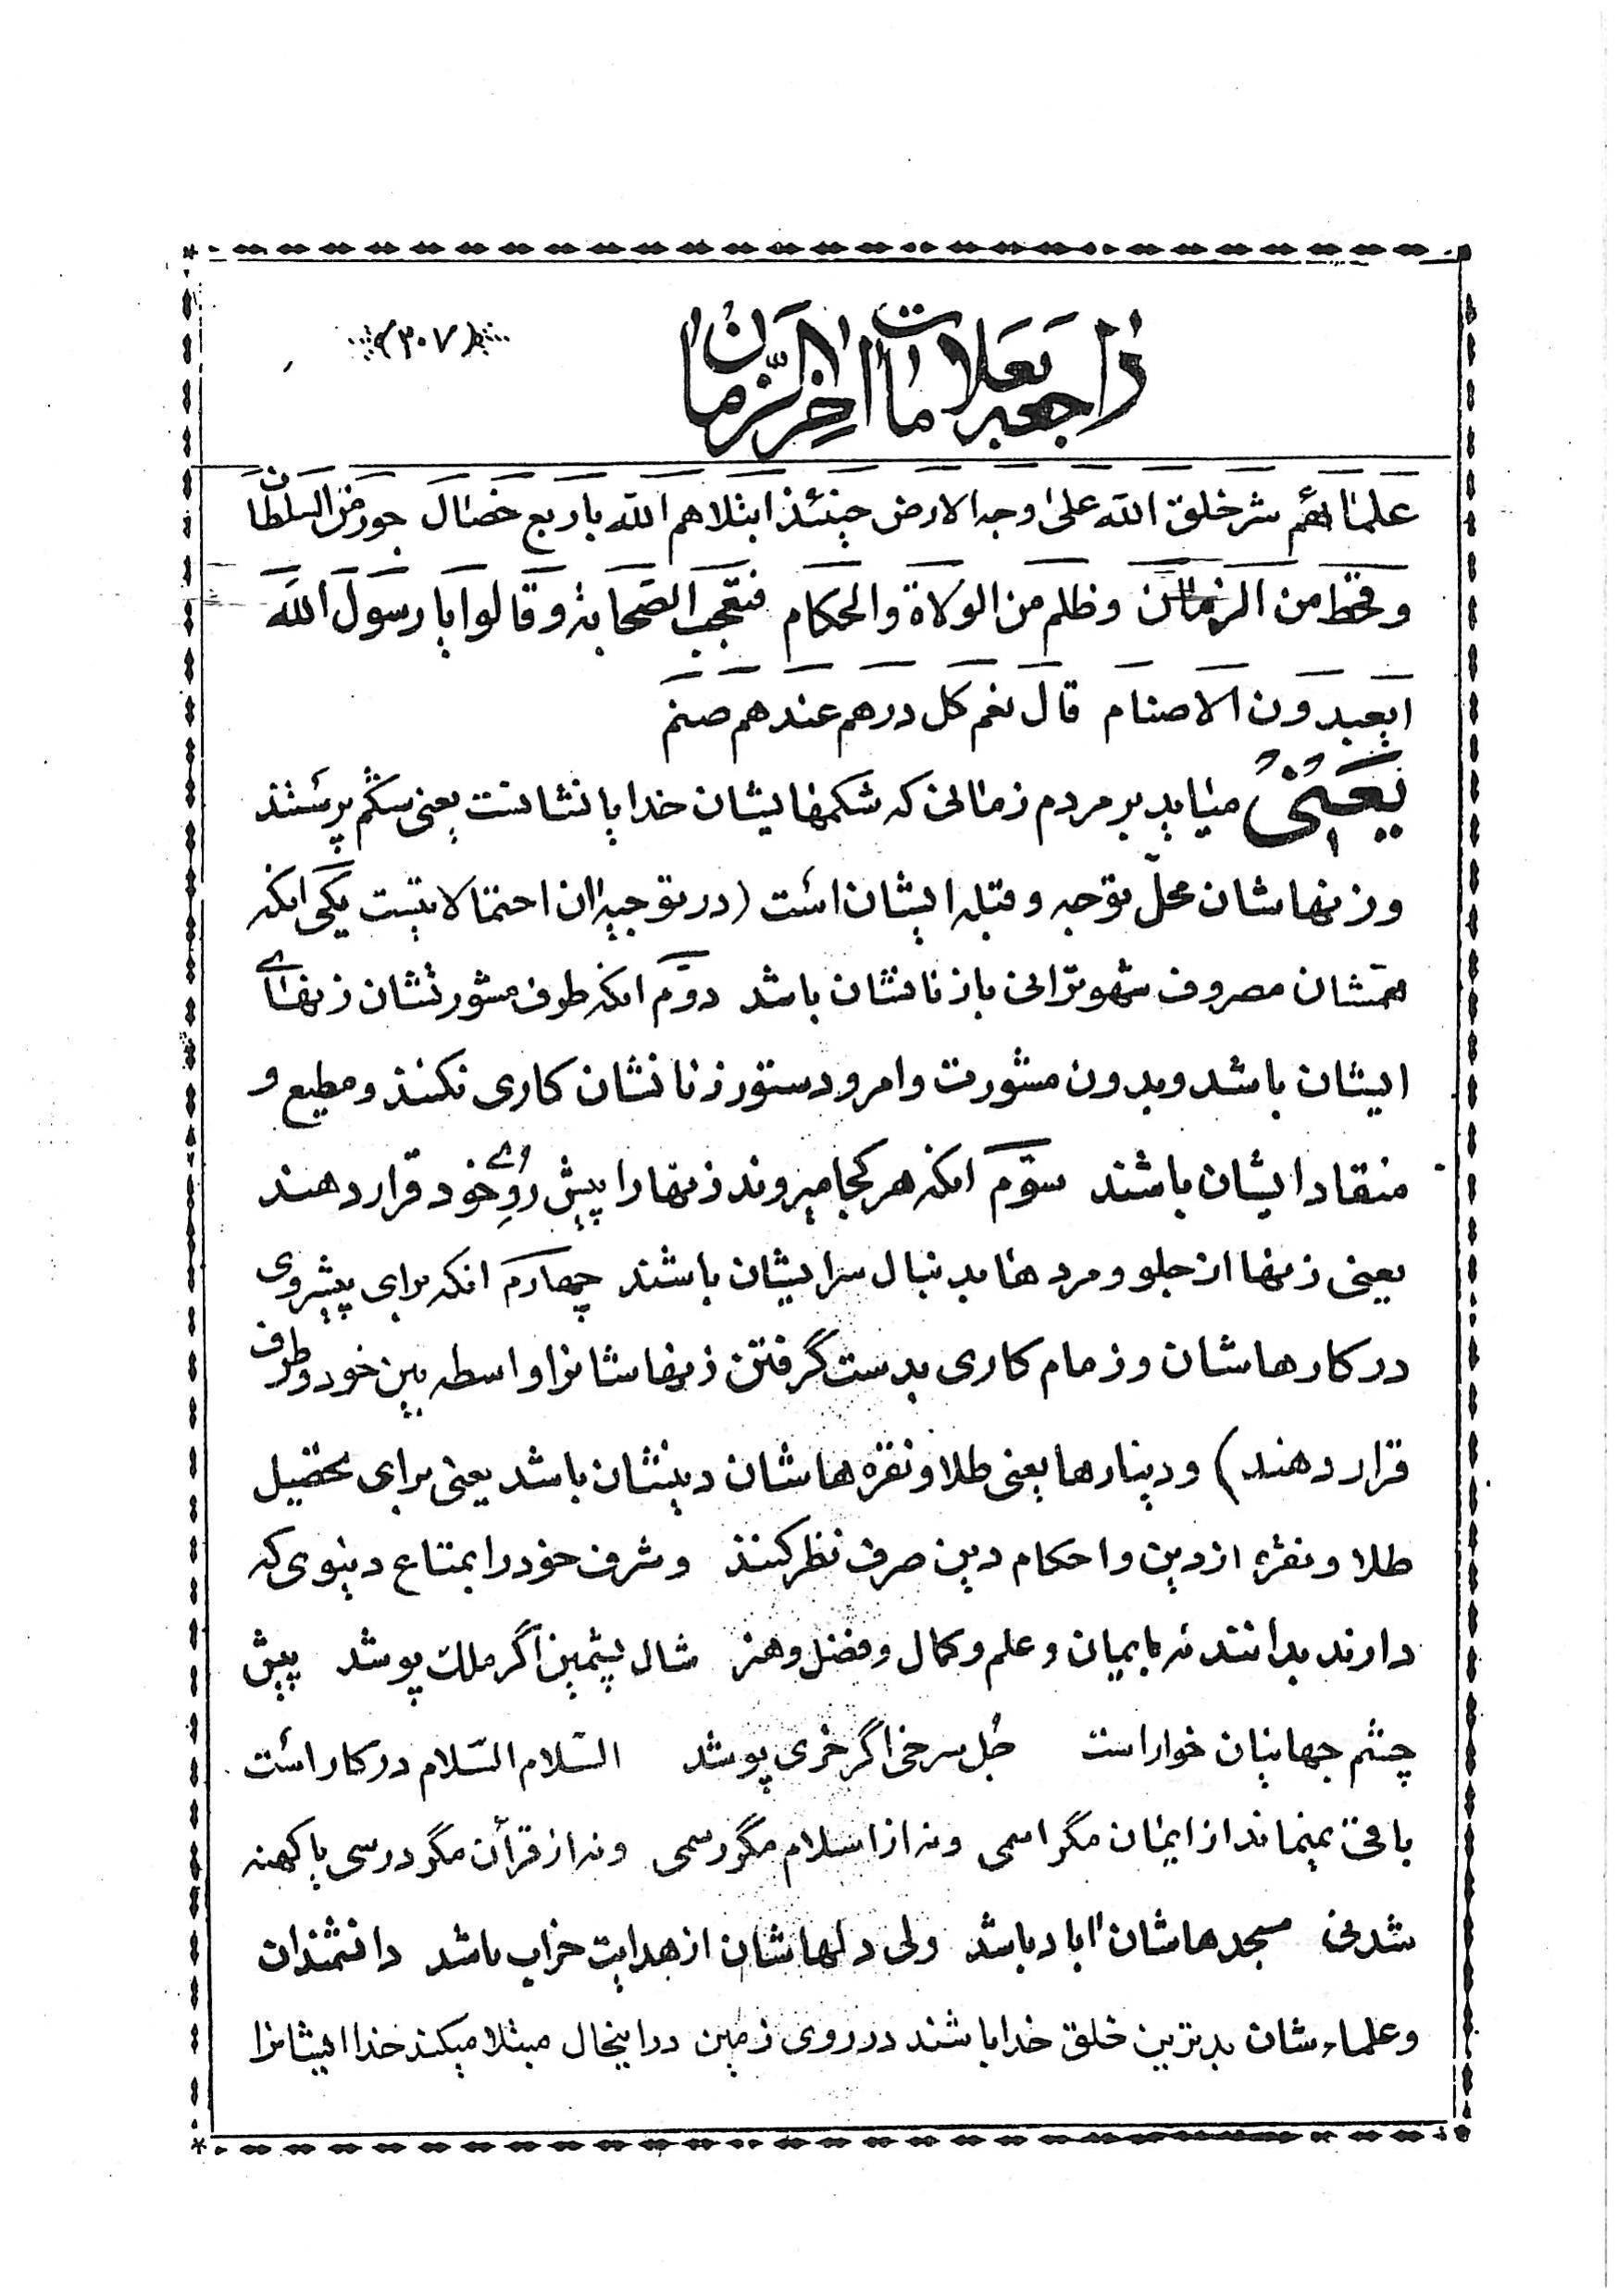 راجعبه بعلامات اخرالزمان
﴿۳۰۷﴾
علمائهم شر خلق الله علی وجه الارض حینئذ ابتلاهم الله باربع خصال جور من السلطان
و قحط من الزمان و ظلم من الولاة والحکام فتعجب الصحابة و قالوا یا رسول الله
ایعبدون الاصنام قال نعم کل درهم عندهم صنم
یعنی میاید بر مردم زمانی که شکمهایشان خدایانشانست یعنی شکم پرستند
و زنهاشان محلّ توجه و قبله ایشان است (در توجیه ان احتمالاتیست یکی انکه
همتشان مصروف شهوترانی با زنانشان باشد دوّم انکه طرف مشورتشان زنهای
ایشان باشد و بدون مشورت و امر و دستور زنانشان کاری نکنند و مطیع و
منقاد ایشان باشند سوّم انکه هر کجا میروند زنها را پیش روِی خود قرار دهند
یعنی زنها از جلو و مردها بدنبال سرایشان باشند چهارم انکه برای پیشروی
در کارهاشان و زمام کاری بدست گرفتن زنهاشانرا واسطه بین خود و طرف
قرار دهند) و دینارها یعنی طلا و نقره هاشان دینشان باشد یعنی برای تحصیل
طلا و نقره از دین و احکام دین صرف نظر کنند و شرف خود را بمتاع دنیوی که
دارند بدانند نه بایمان و علم و کمال و فضل و هنر شال پشمین اگر ملک پوشد پیش
چشم جهانیان خوار است جُل سرخی اگر خری پوشد السّلام السّلام در کار است
باقی نمیماند از ایمان مگر اسمی و نه از اسلام مگر رسمی و نه از قرآن مگر درسی یا کهنه
شدنی مسجدهاشان اباد باشد ولی دلهاشان از هدایت خراب باشد دانشمندان
و علماء شان بدترین خلق خدا باشند در روی زمین در اینحال مبتلا میکند خدا ایشانرا